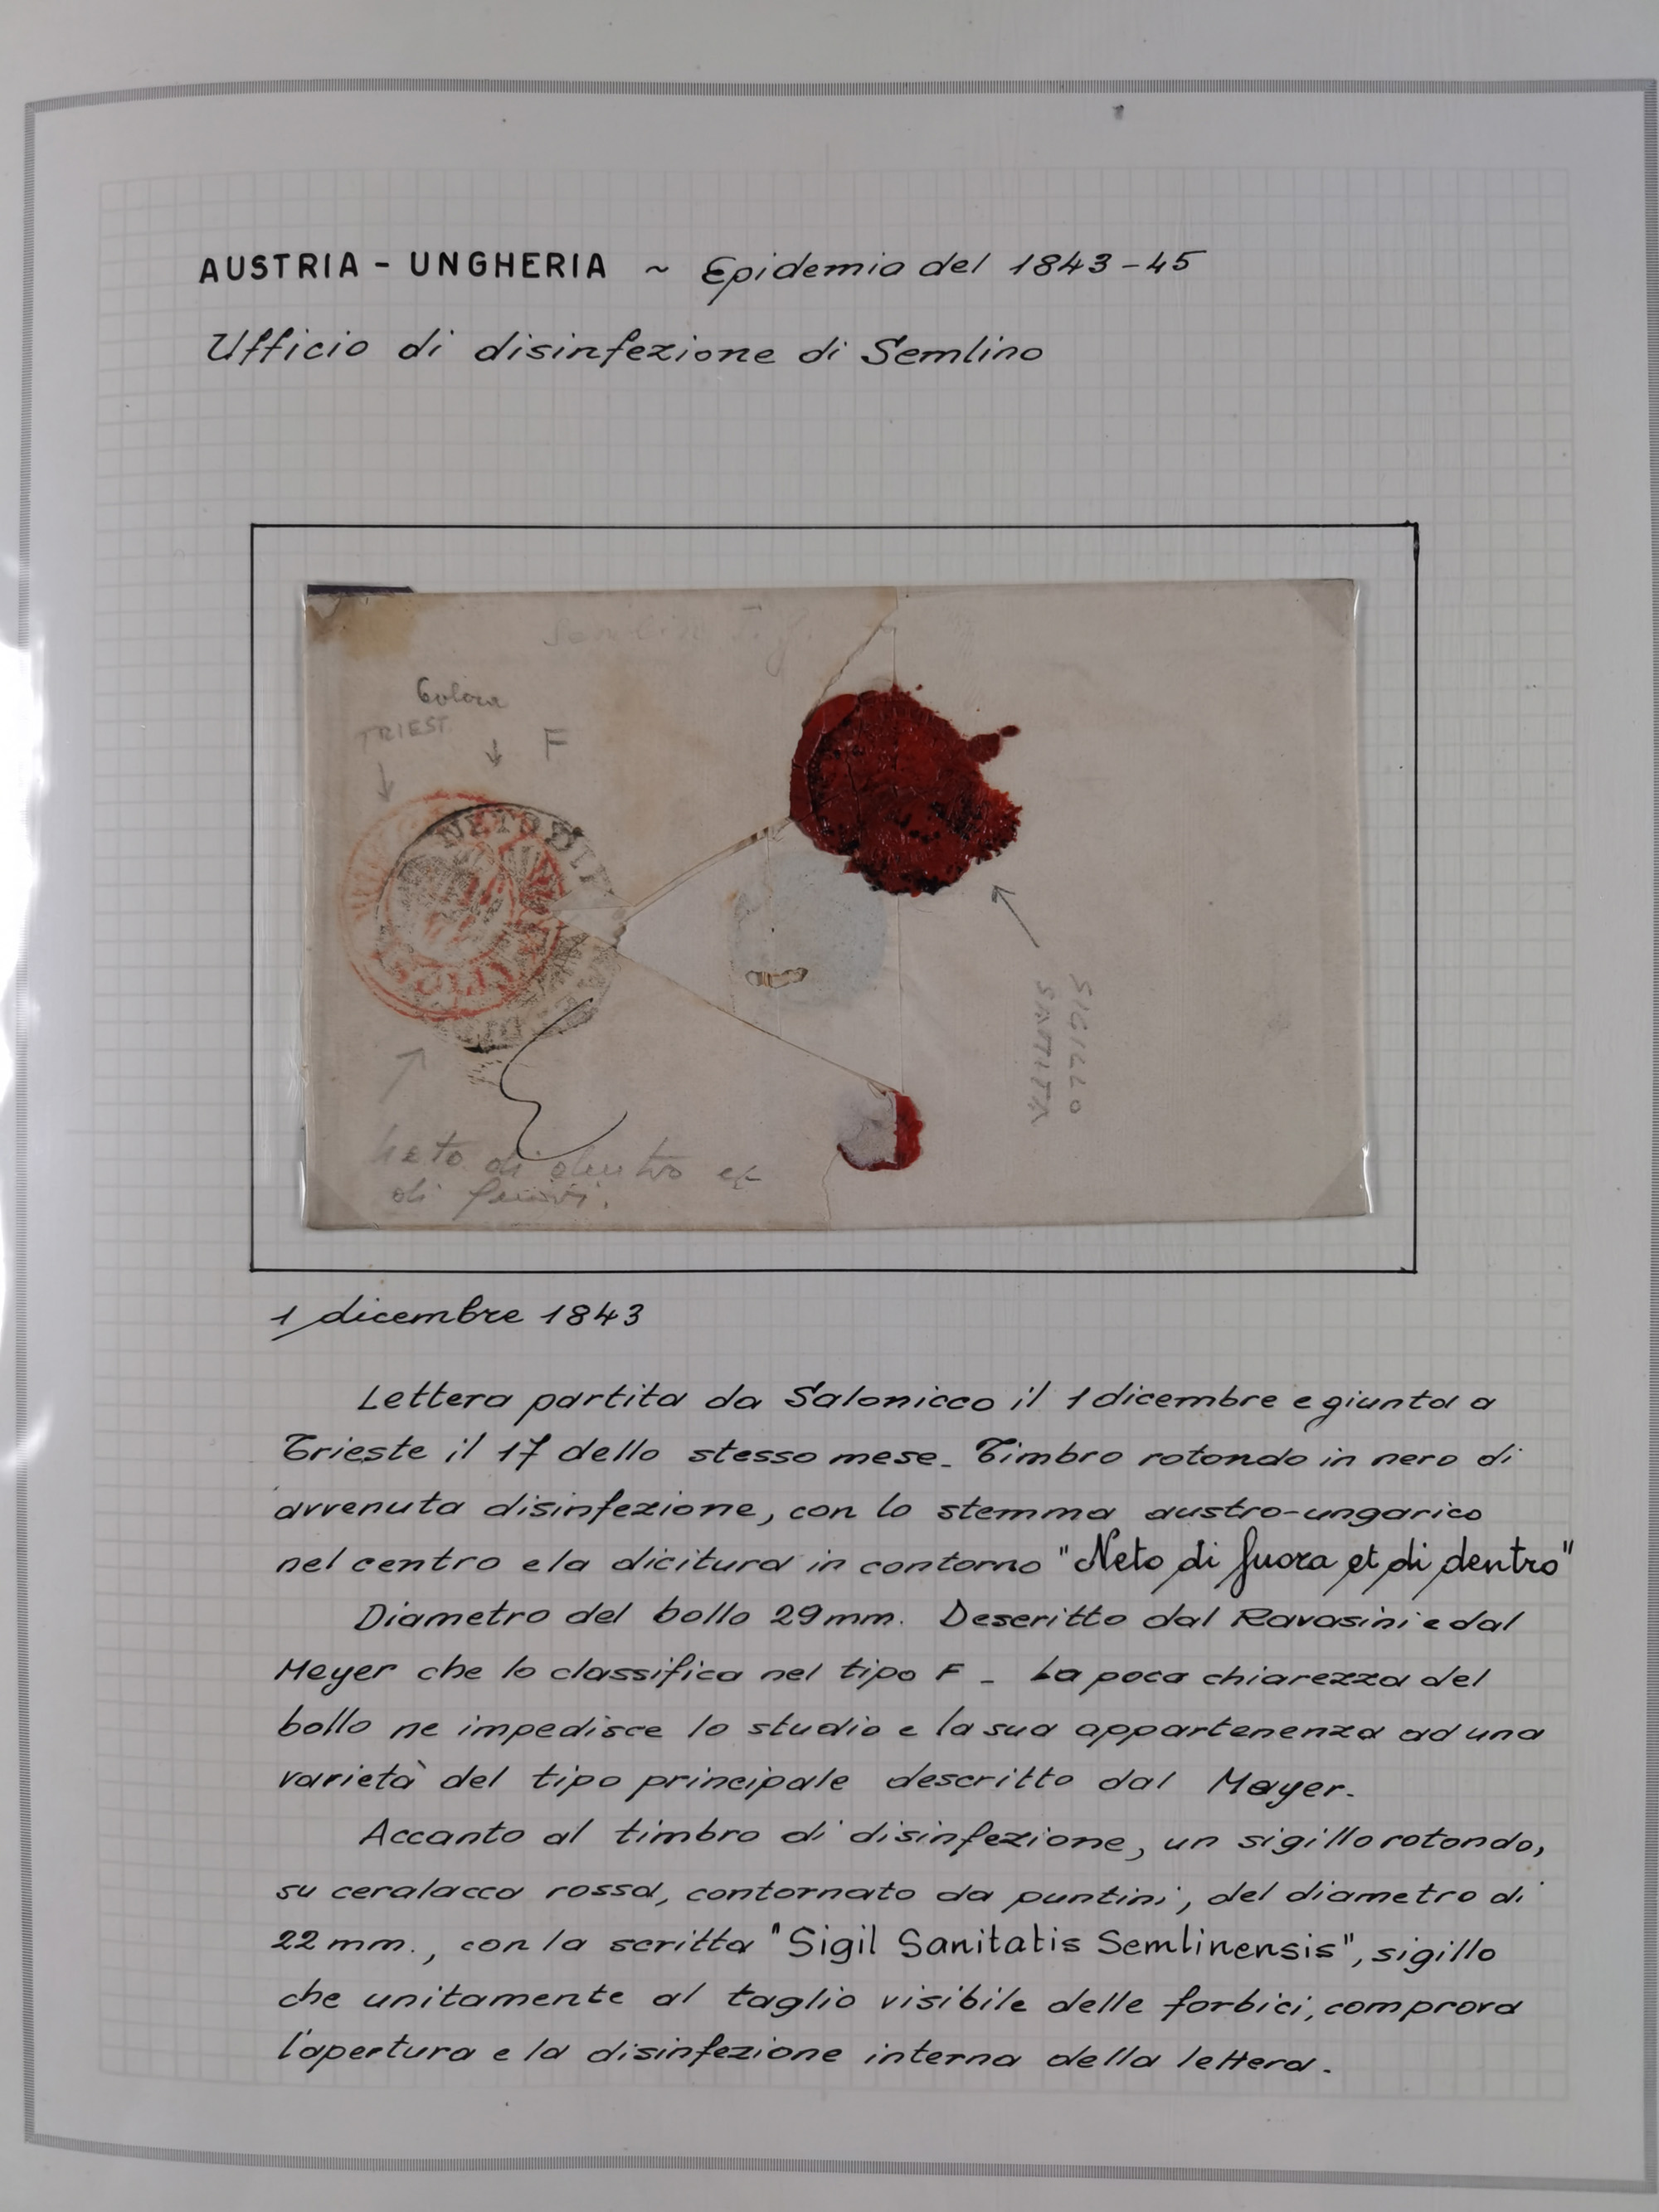 AUSTRIA - UNGHERIA ~ Epidemia del 1843-45
Ufficio di disinfezione di Semlino
Semlin
Colera
TRIEST.
F
NETO DI F
SIGILLO
SANITÀ
neto di dentro et
di fuori.
1 dicembre 1843
Lettera partita da Salonicco il 1 dicembre e giunta a
Trieste il 17 dello stesso mese. Timbro rotondo in nero di
avvenuta disinfezione, con lo stemma austro-ungarico
nel centro e la dicitura in contorno "Neto di fuora et di dentro"
Diametro del bollo 29 mm. Descritto dal Ravasini e dal
Meyer che lo classifica nel tipo F - La poca chiarezza del
bollo ne impedisce lo studio e la sua appartenenza ad una
varietà del tipo principale descritto dal Mayer.
Accanto al timbro di disinfezione, un sigillo rotondo,
su ceralacca rossa, contornato da puntini, del diametro di
22 mm., con la scritta "Sigil Sanitatis Semlinensis", sigillo
che unitamente al taglio visibile delle forbici, comprova
l'apertura e la disinfezione interna della lettera.